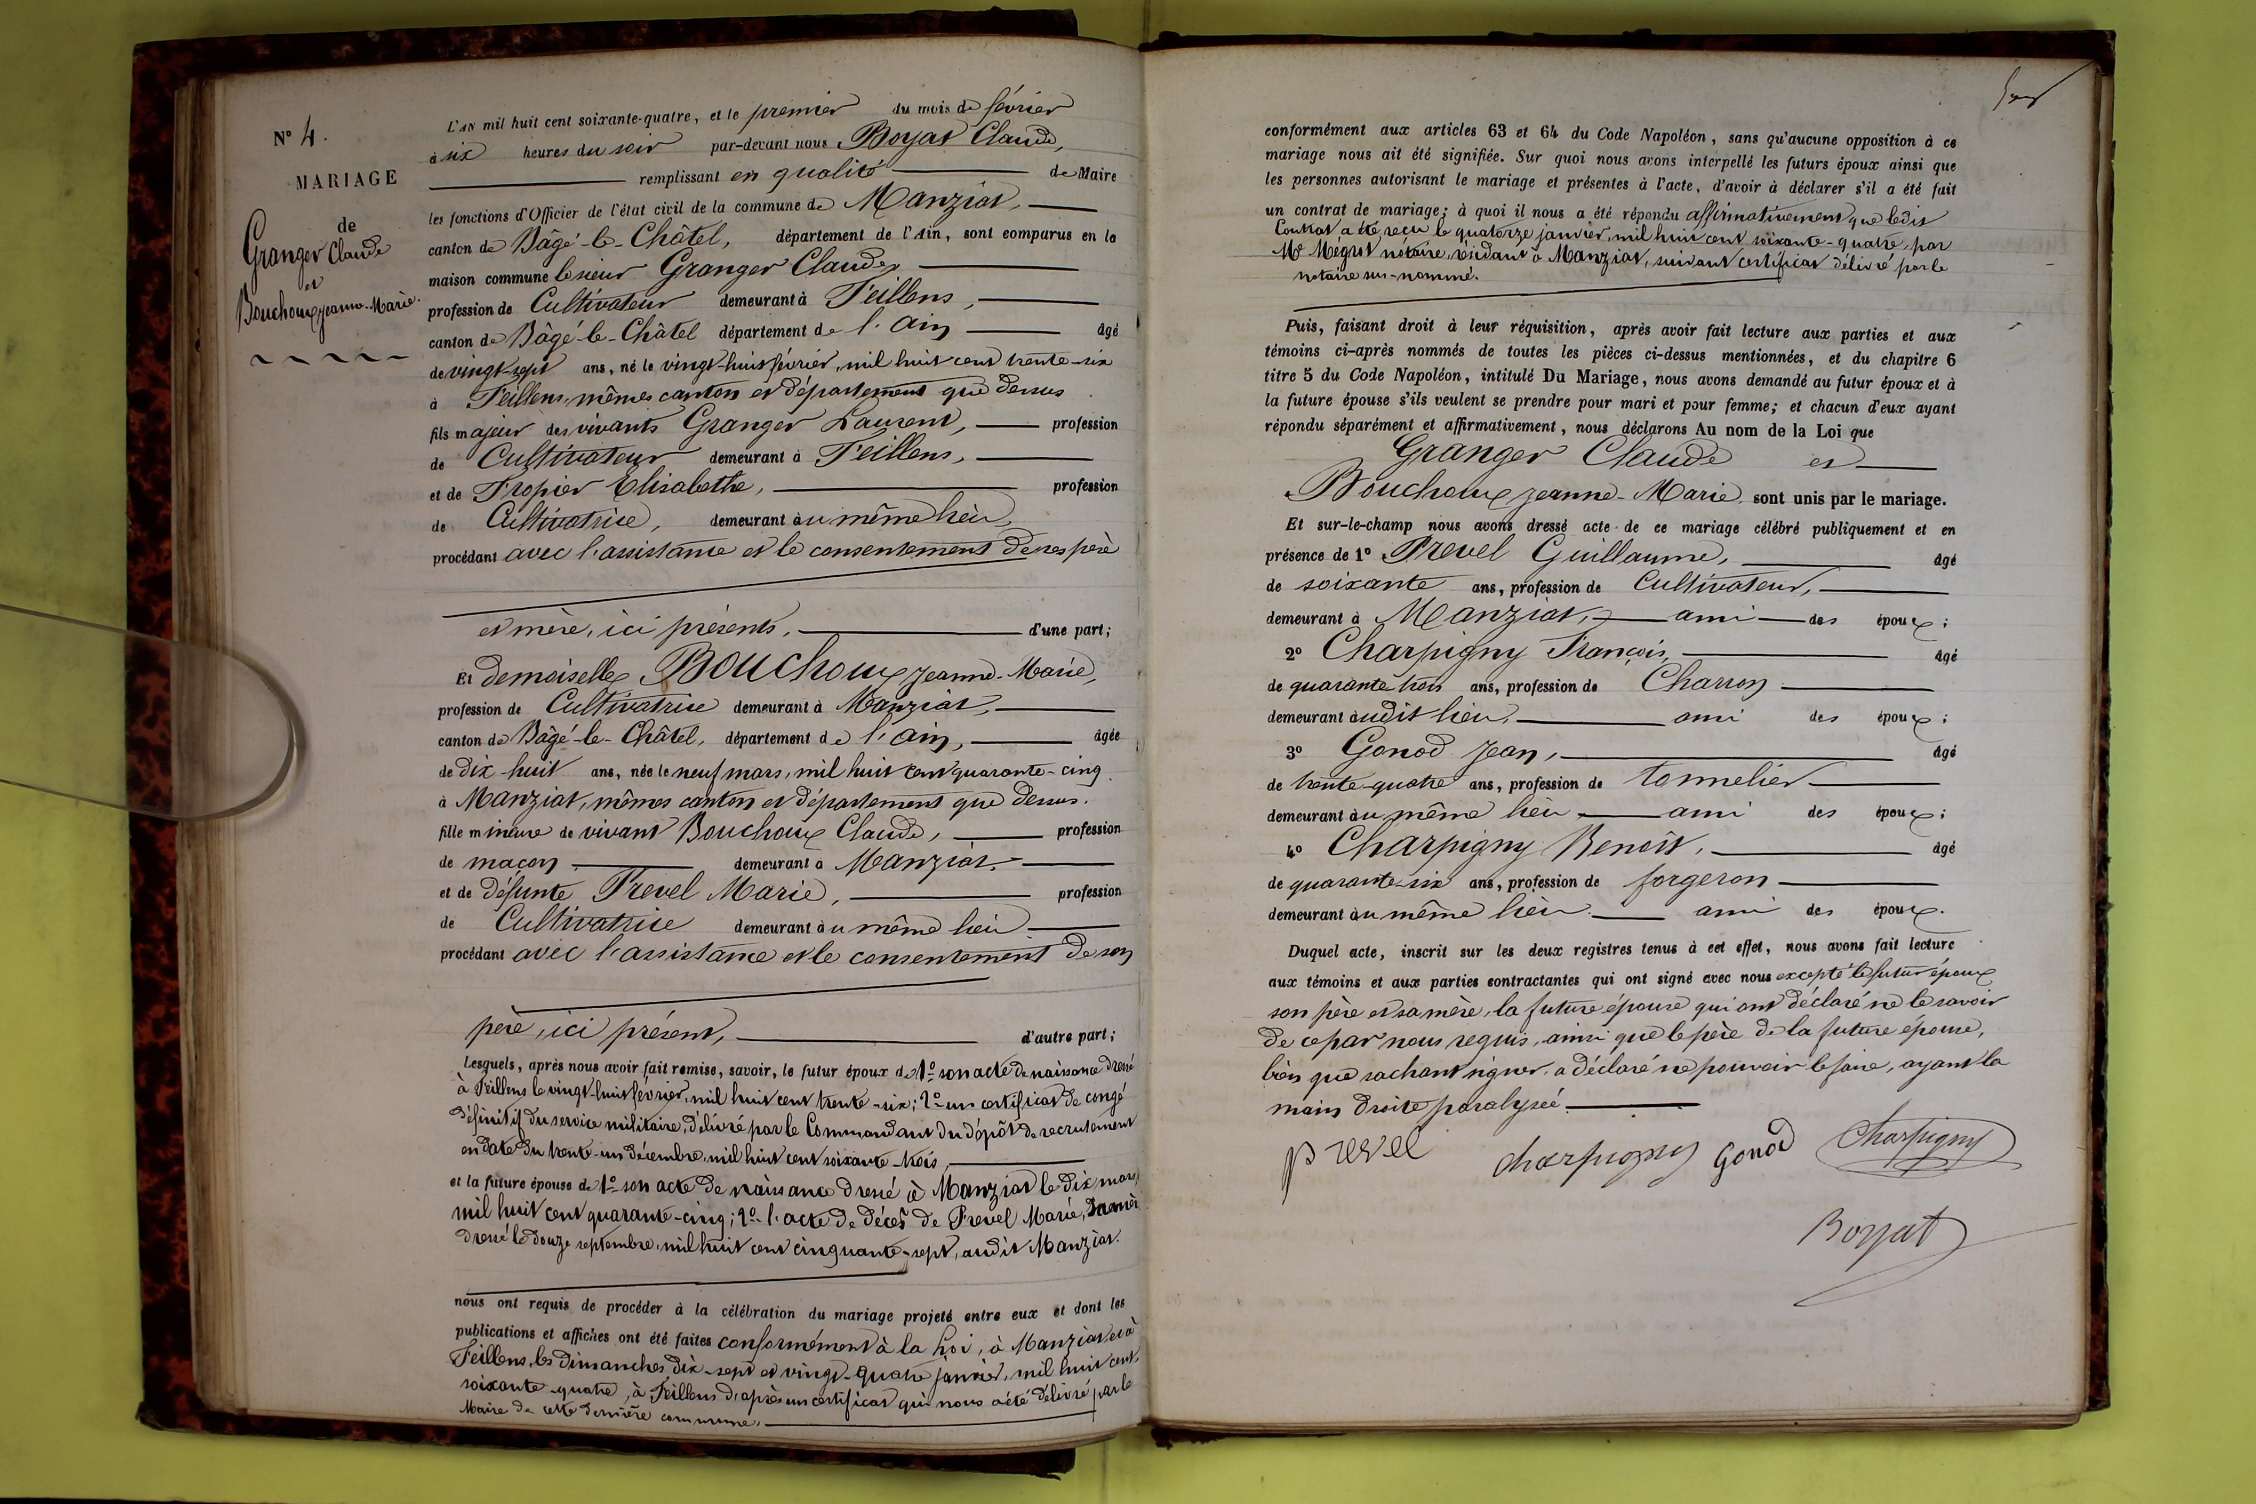 N° 4.
MARIAGE
de
Granger Claude
et
Bouchoux Jeanne-Marie.
L'AN mil huit cent soixante-quatre, et le premier du mois de février
à six heures du soir par-devant nous Boyat Claude,
remplissant en qualité de Maire
les fonctions d'Officier de l'état civil de la commune de Manziat,
canton de Bâgé-le-Châtel, département de l'Ain, sont comparus en la
maison commune le sieur Granger Claude,
profession de Cultivateur demeurant à Feillens,
canton de Bâgé-le-Châtel département de l'Ain âgé
de vingt-sept ans, né le vingt-huit février, mil huit cent trente-six
à Feillens, mêmes canton et département que dessus
fils majeur des vivants Granger Laurent, profession
de Cultivateur demeurant à Feillens,
et de Tropier Elisabethe, profession
de Cultivatrice, demeurant au même lieu,
procédant avec l'assistance et le consentement de ses père
et mère, ici présents, d'une part;
Et demoiselle Bouchoux Jeanne-Marie,
profession de Cultivatrice demeurant à Manziat,
canton de Bâgé-le-Châtel, département de l'Ain, âgée
de dix-huit ans, née le neuf mars, mil huit cent quarante-cinq
à Manziat, mêmes canton et département que dessus.
fille mineure de vivant Bouchoux Claude, profession
de maçon demeurant à Manziat
et de défunte Prevel Marie, profession
de Cultivatrice demeurant au même lieu
procédant avec l'assistance et le consentement de son
père, ici présent, d'autre part;
Lesquels, après nous avoir fait remise, savoir, le futur époux de 1° son acte de naissance dressé
à Feillens le vingt-huit février, mil huit cent trente-six; 2° un certificat de congé
définitif du service militaire, délivré par le Commandant du dépôt de recrutement
en date du trente-un décembre, mil huit cent soixante-trois,
et la future épouse de 1° son acte de naissance dressé à Manziat le dix mars,
mil huit cent quarante-cinq; 2° l'acte de décès de Prevel Marie, sa mère
dressé le douze septembre, mil huit cent cinquante-sept, audit Manziat.
nous ont requis de procéder à la célébration du mariage projeté entre eux et dont les
publications et affiches ont été faites conformément à la Loi, à Manziat et à
Feillens, les dimanches dix-sept et vingt-quatre janvier, mil huit cent
soixante-quatre, à Feillens d'après un certificat qui nous a été délivré par le
Maire de cette dernière commune.
conformément aux articles 63 et 64 du Code Napoléon, sans qu'aucune opposition à ce
mariage nous ait été signifiée. Sur quoi nous avons interpellé les futurs époux ainsi que
les personnes autorisant le mariage et présentes à l'acte, d'avoir à déclarer s'il a été fait
un contrat de mariage; à quoi il nous a été répondu affirmativement que ledit
Contrat a été reçu le quatorze janvier, mil huit cent soixante-quatre, par
Me notaire, résidant à Manziat, suivant certificat délivré par le
notaire sus-nommé.
Puis, faisant droit à leur réquisition, après avoir fait lecture aux parties et aux
témoins ci-après nommés de toutes les pièces ci-dessus mentionnées, et du chapitre 6
titre 5 du Code Napoléon, intitulé Du Mariage, nous avons demandé au futur époux et à
la future épouse s'ils veulent se prendre pour mari et pour femme; et chacun d'eux ayant
répondu séparément et affirmativement, nous déclarons Au nom de la Loi que
Granger Claude et
Bouchoux Jeanne-Marie sont unis par le mariage.
Et sur-le-champ nous avons dressé acte de ce mariage célébré publiquement et en
présence de 1° Prevel Guillaume, âgé
de soixante ans, profession de Cultivateur,
demeurant à Manziat, ami des époux;
2° Charpigny François, âgé
de quarante-trois ans, profession de Charron
demeurant audit lieu, ami des époux;
3° Gonod Jean, âgé
de trente-quatre ans, profession de tonnelier
demeurant au même lieu ami des époux;
4° Charpigny Benoît, âgé
de quarante-six ans, profession de forgeron
demeurant au même lieu ami des époux.
Duquel acte, inscrit sur les deux registres tenus à cet effet, nous avons fait lecture
aux témoins et aux parties contractantes qui ont signé avec nous excepté le futur époux
son père et sa mère, la future épouse qui ont déclaré ne le savoir
de ce par nous requis, ainsi que le père de la future épouse,
bien que sachant signer, a déclaré ne pouvoir le faire, ayant la
main droite paralysée.
prevel charpigny Gonod Charpigny
Boyat